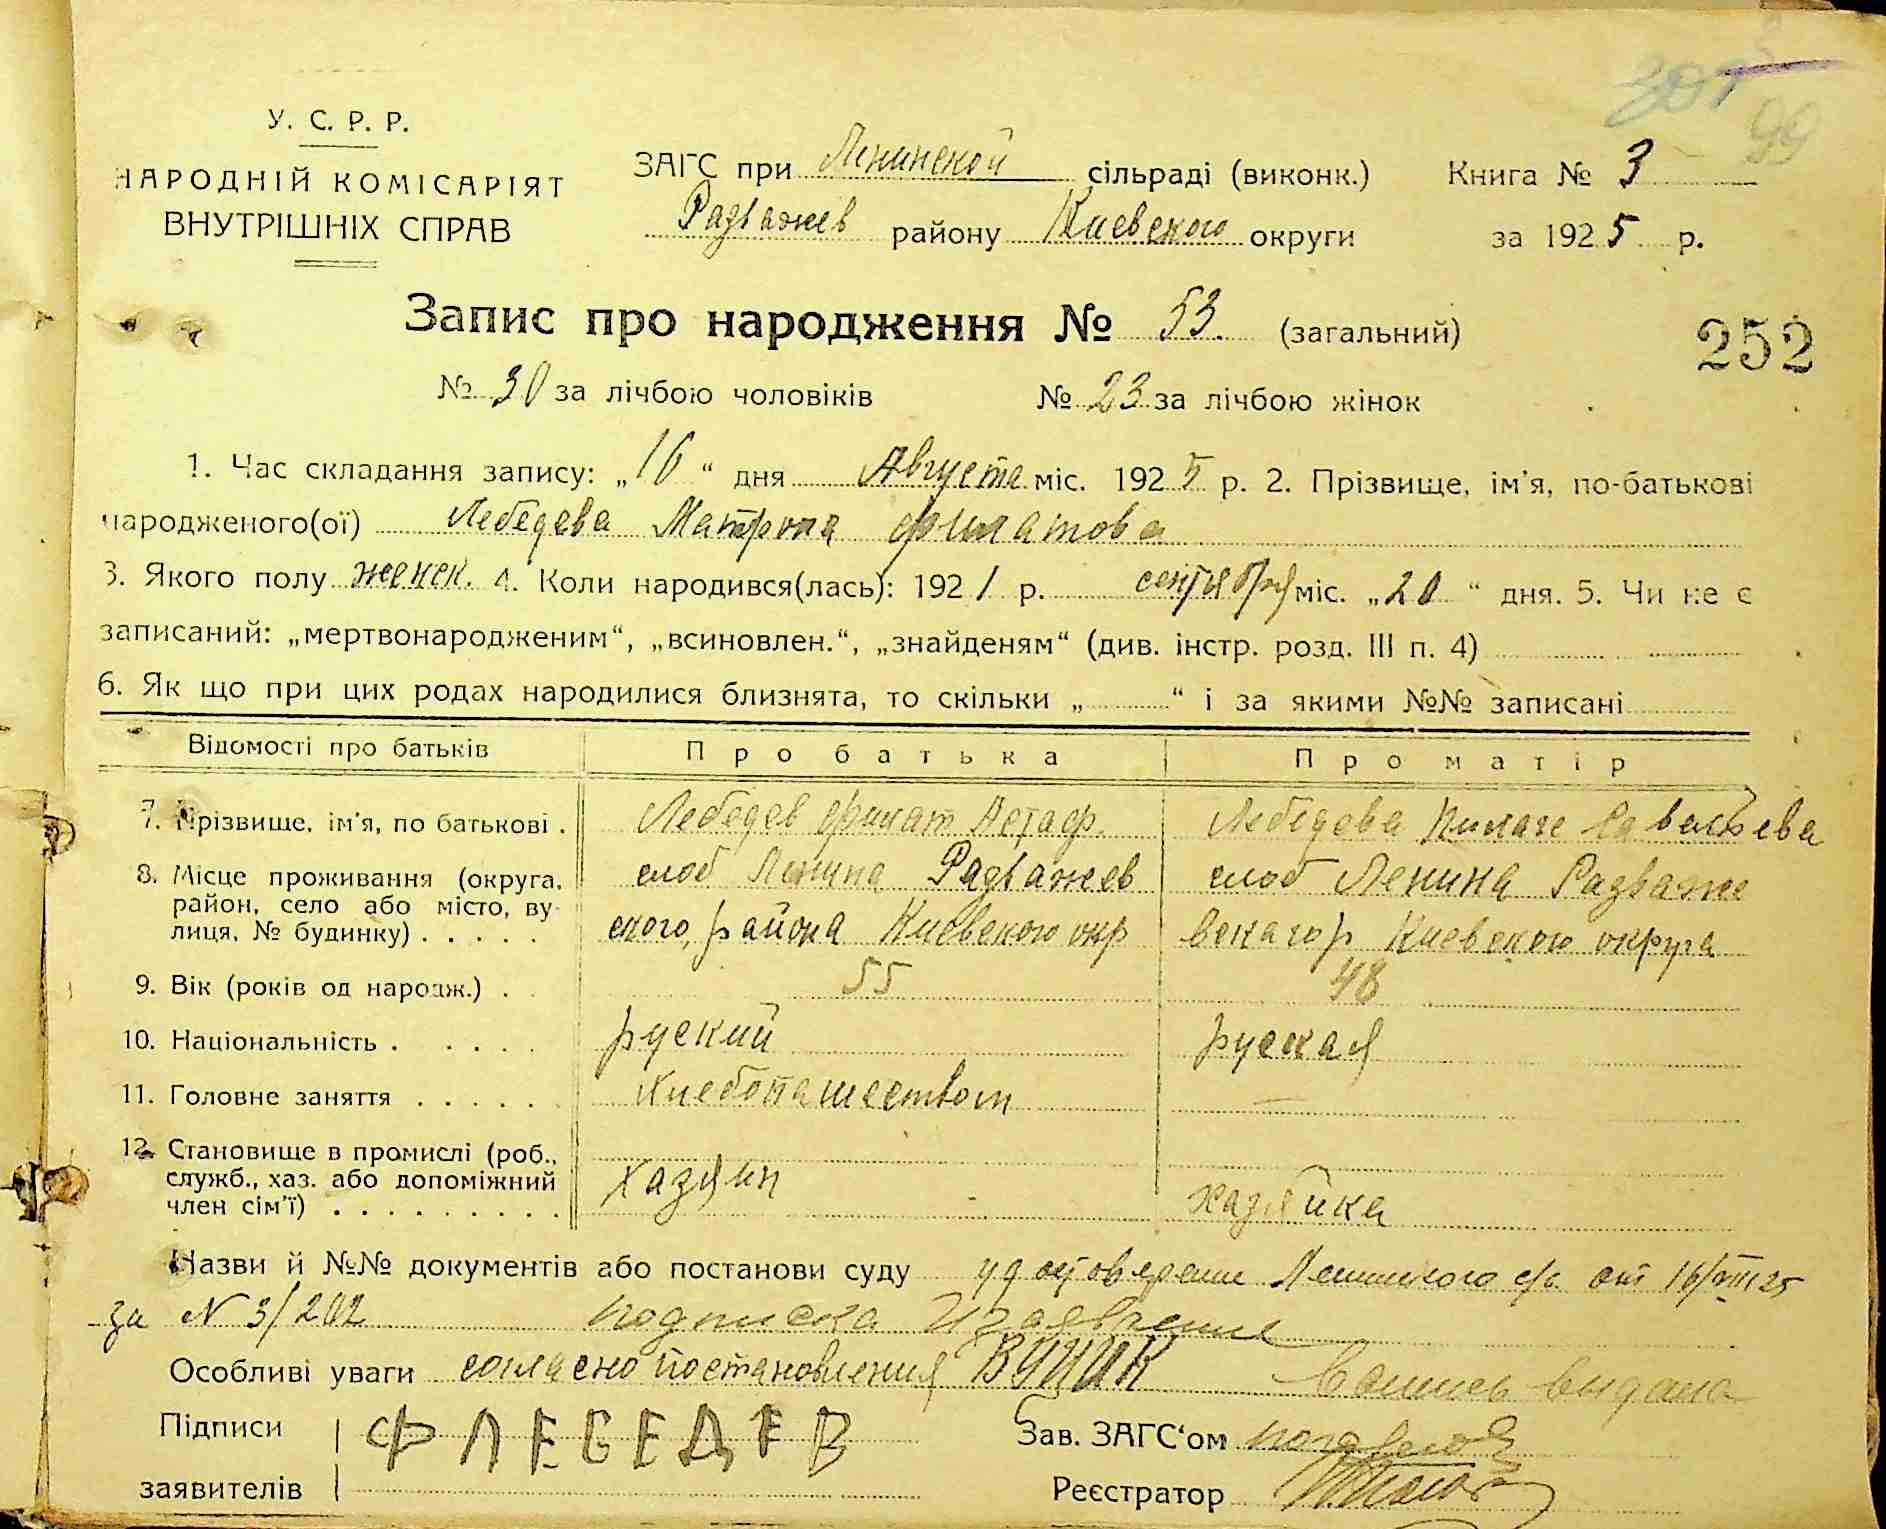 У. С. Р. Р.
НАРОДНІЙ КОМІСАРІЯТ
ВНУТРІШНІХ СПРАВ
ЗАГС при Ленинской сільраді (виконк.) Книга № 3
Разважев району Киевского округи за 1925 р.
99
Запис про народження № 53. (загальний)
252
№ 30 за лічбою чоловіків № 23 за лічбою жінок
1. Час складання запису: „16“ дня Августа міс. 1925 р. 2. Прізвище, ім'я, по-батькові
народженого(ої) Лебедева Матрона филатова
3. Якого полу женск. 4. Коли народився(лась): 1921 р. сентября міс. „20“ дня. 5. Чи не є
записаний: „мертвонародженим“, „всиновлен.“, „знайденям“ (див. інстр. розд. III п. 4)
6. Як що при цих родах народилися близнята, то скільки „ “ і за якими №№ записані
Відомості про батьків Про батька Про матір
7. Прізвище, ім'я, по батькові . Лебедев филат Астаф. Лебедева Килаге Савельева
8. Місце проживання (округа, слоб Ленина Разважев слоб Ленина Разваже
район, село або місто, ву-
лиця, № будинку) . . . . . ского, района Киевского окр вскаго р Киевского округа
9. Вік (років од народж.) . 55 48
10. Національність . . . . . руский руская
11. Головне заняття . . . . . Хлебопашеством —
12. Становище в промислі (роб.,
служб., хаз. або допоміжний хазяин хазяйка
член сім'ї) . . . . . . . . .
Назви й №№ документів або постанови суду удостоверение Ленинского с/с. от 16/VIII 25
за N 3/202 подписка и заявление
Особливі уваги согласно постановления ВУЦИК выдана
Підписи Ф ЛЕБЕДЕВ Зав. ЗАГС'ом
заявителів Реєстратор